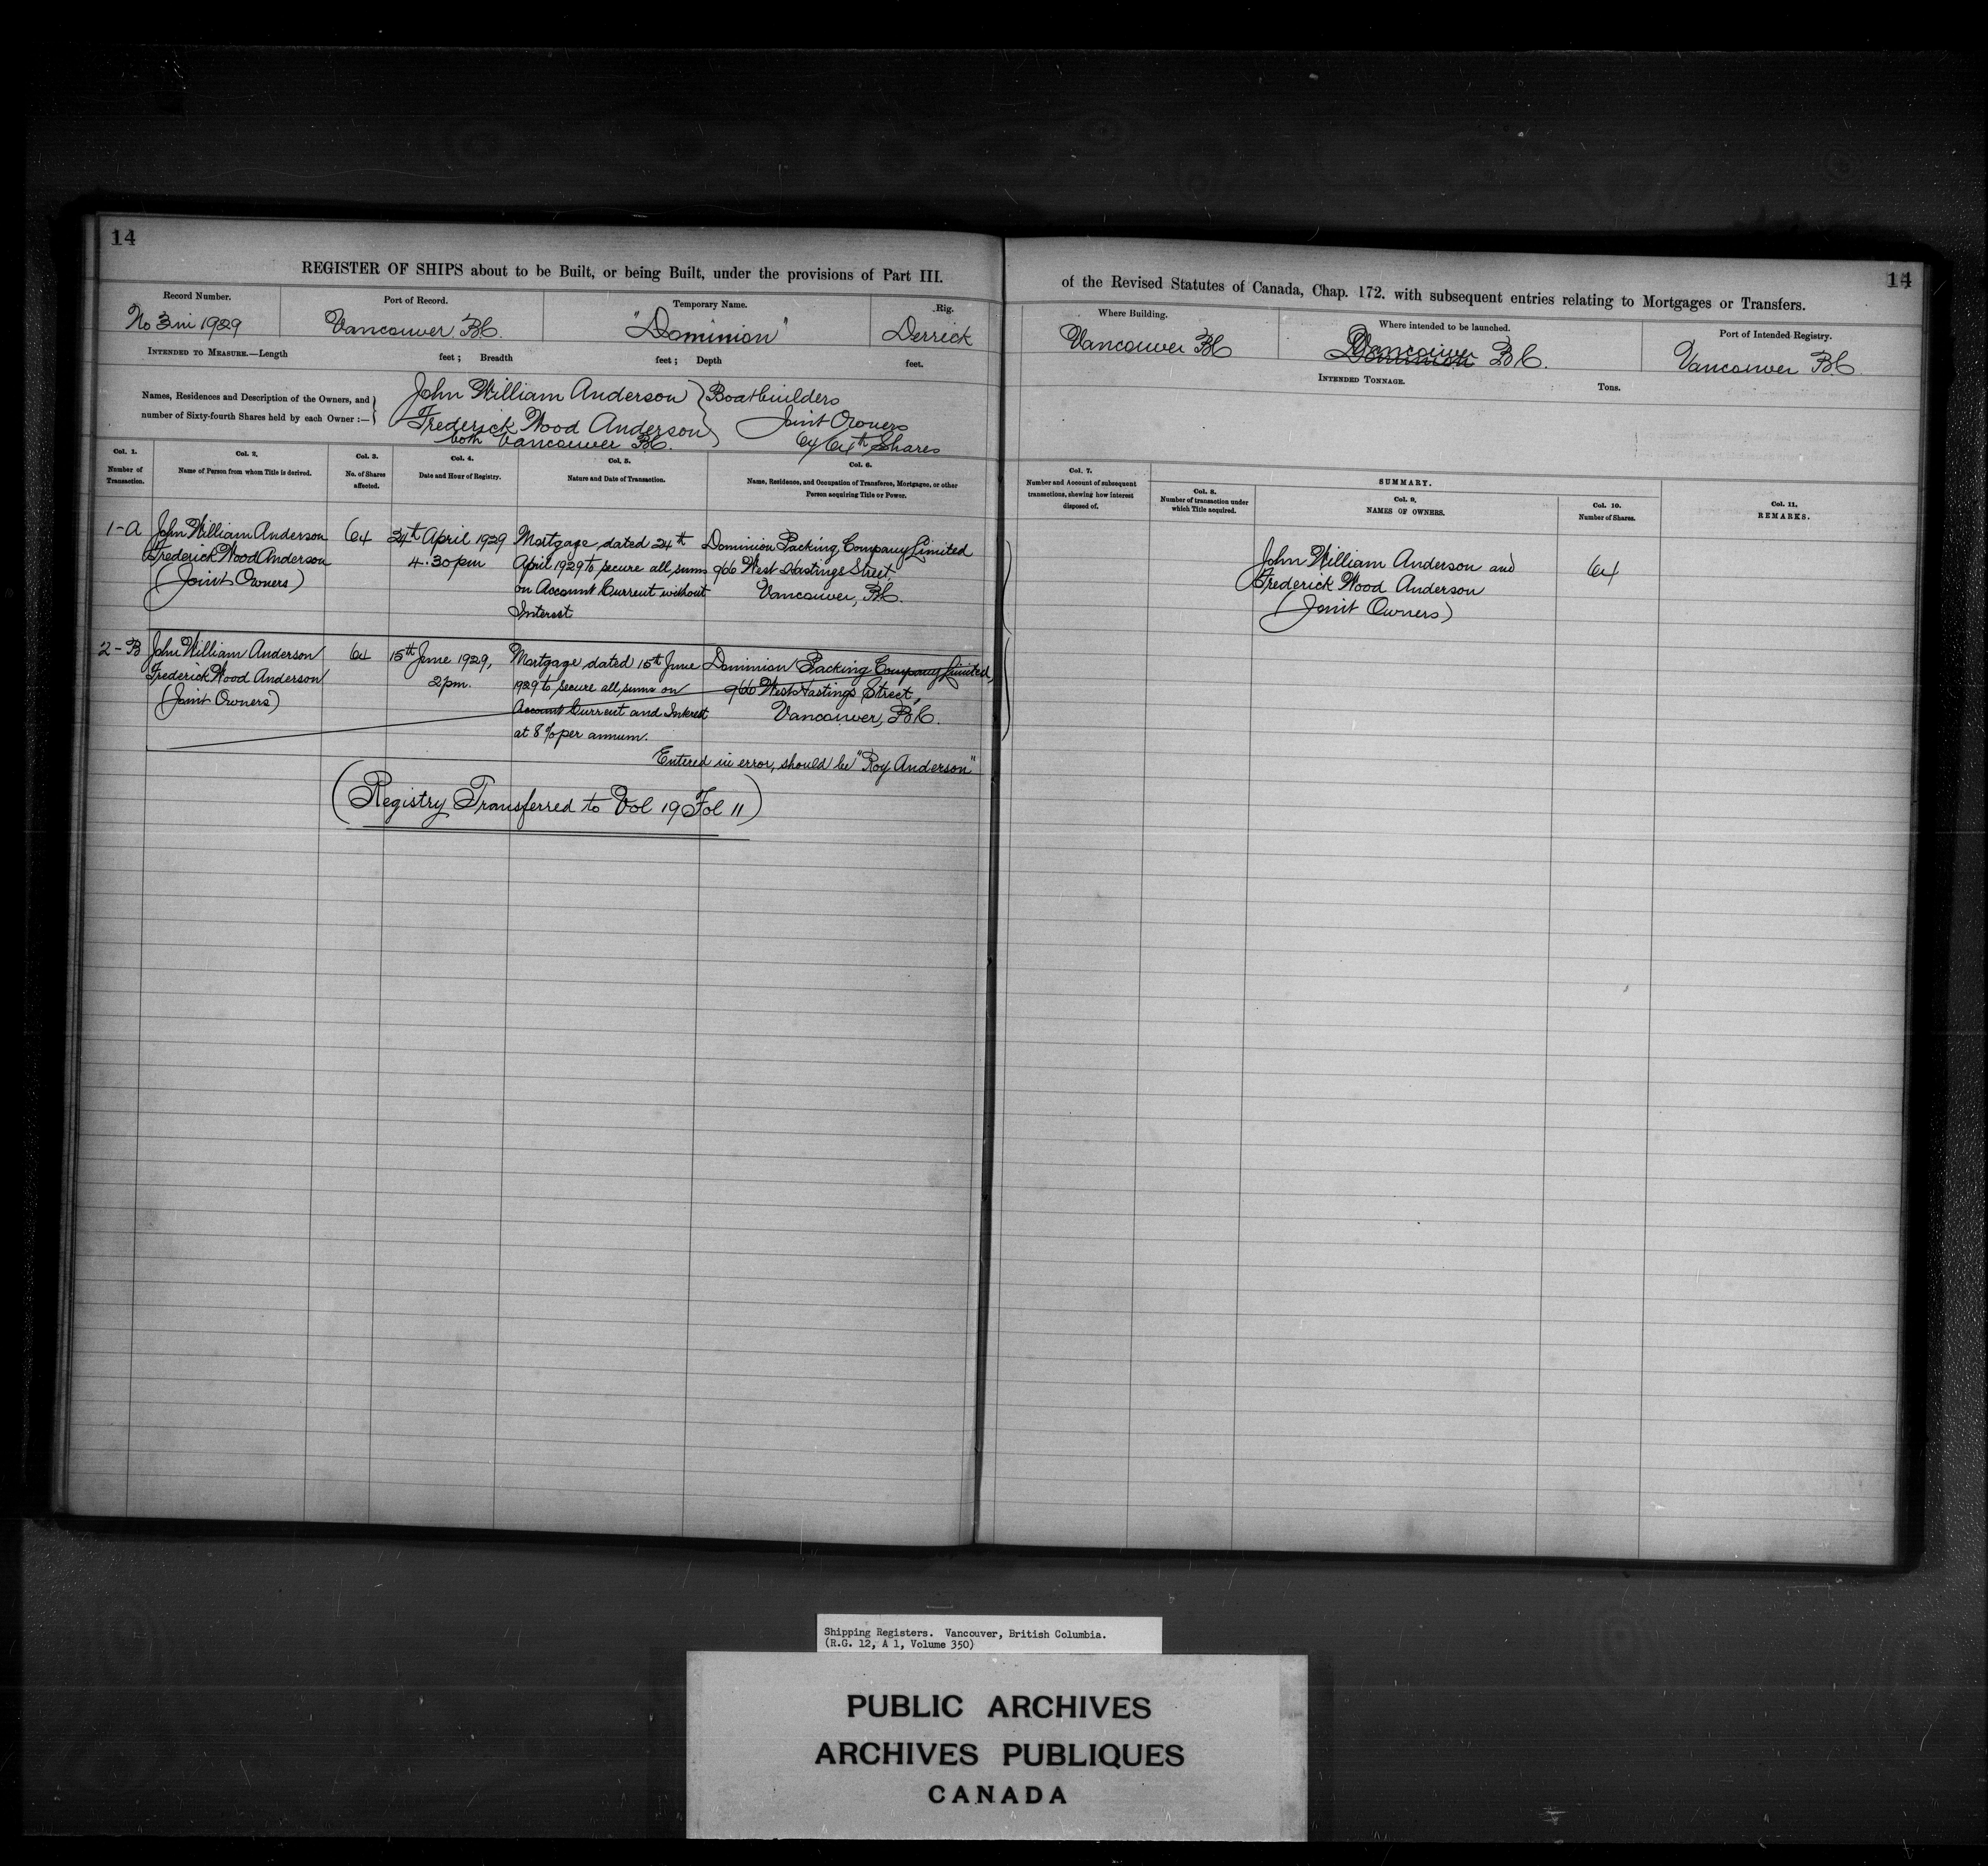 14
REGISTER OF SHIPS about to be Built, or being Built, under the provisions of Part III.
Record Number.
Port of Record.
Temporary Name.
Rig.
No 3 in 1929
Vancouver B.C.
"Dominion"
Derrick
INTENDED TO MEASURE.—Length feet; Breadth feet; Depth feet.
Names, Residences and Description of the Owners, and
number of Sixty-fourth Shares held by each Owner:—
John William Anderson
Frederick Wood Anderson
both Vancouver B.C.
Boatbuilders
Joint Owners
64/64th Shares
Col. 1.
Number of
Transaction.
Col. 2.
Name of Person from whom Title is derived.
Col. 3.
No. of Shares
affected.
Col. 4.
Date and Hour of Registry.
Col. 5.
Nature and Date of Transaction.
Col. 6.
Name, Residence, and Occupation of Transferee, Mortgagee, or other
Person acquiring Title or Power.
1-A
John William Anderson
Frederick Wood Anderson
(Joint Owners)
64
24th April 1929
4.30pm
Mortgage dated 24th
April 1929 to secure all sums
on Account Current without
Interest
Dominion Packing Company Limited
966 West Hastings Street
Vancouver, B.C.
2-B
John William Anderson
Frederick Wood Anderson
(Joint Owners)
64
15th June 1929,
2pm.
Mortgage dated 15th June
1929 to secure all sums on
Account Current and Interest
at 8% per annum.
Dominion Packing Company Limited,
966 West Hastings Street,
Vancouver, B.C.
Entered in error, should be "Roy Anderson"
(Registry Transferred to Vol 19 Fol 11)
14
of the Revised Statutes of Canada, Chap. 172. with subsequent entries relating to Mortgages or Transfers.
Where Building.
Where intended to be launched.
Port of Intended Registry.
Vancouver B.C.
Vancouver B.C.
Vancouver B.C.
INTENDED TONNAGE.
Tons.
Col. 7.
Number and Account of subsequent
transactions, shewing how interest
disposed of.
SUMMARY.
Col. 8.
Number of transaction under
which Title acquired.
Col. 9.
NAMES OF OWNERS.
Col. 10.
Number of Shares.
Col. 11.
REMARKS.
John William Anderson and
Frederick Wood Anderson
(Joint Owners)
64
Shipping Registers. Vancouver, British Columbia.
(R.G. 12, A 1, Volume 350)
PUBLIC ARCHIVES
ARCHIVES PUBLIQUES
CANADA